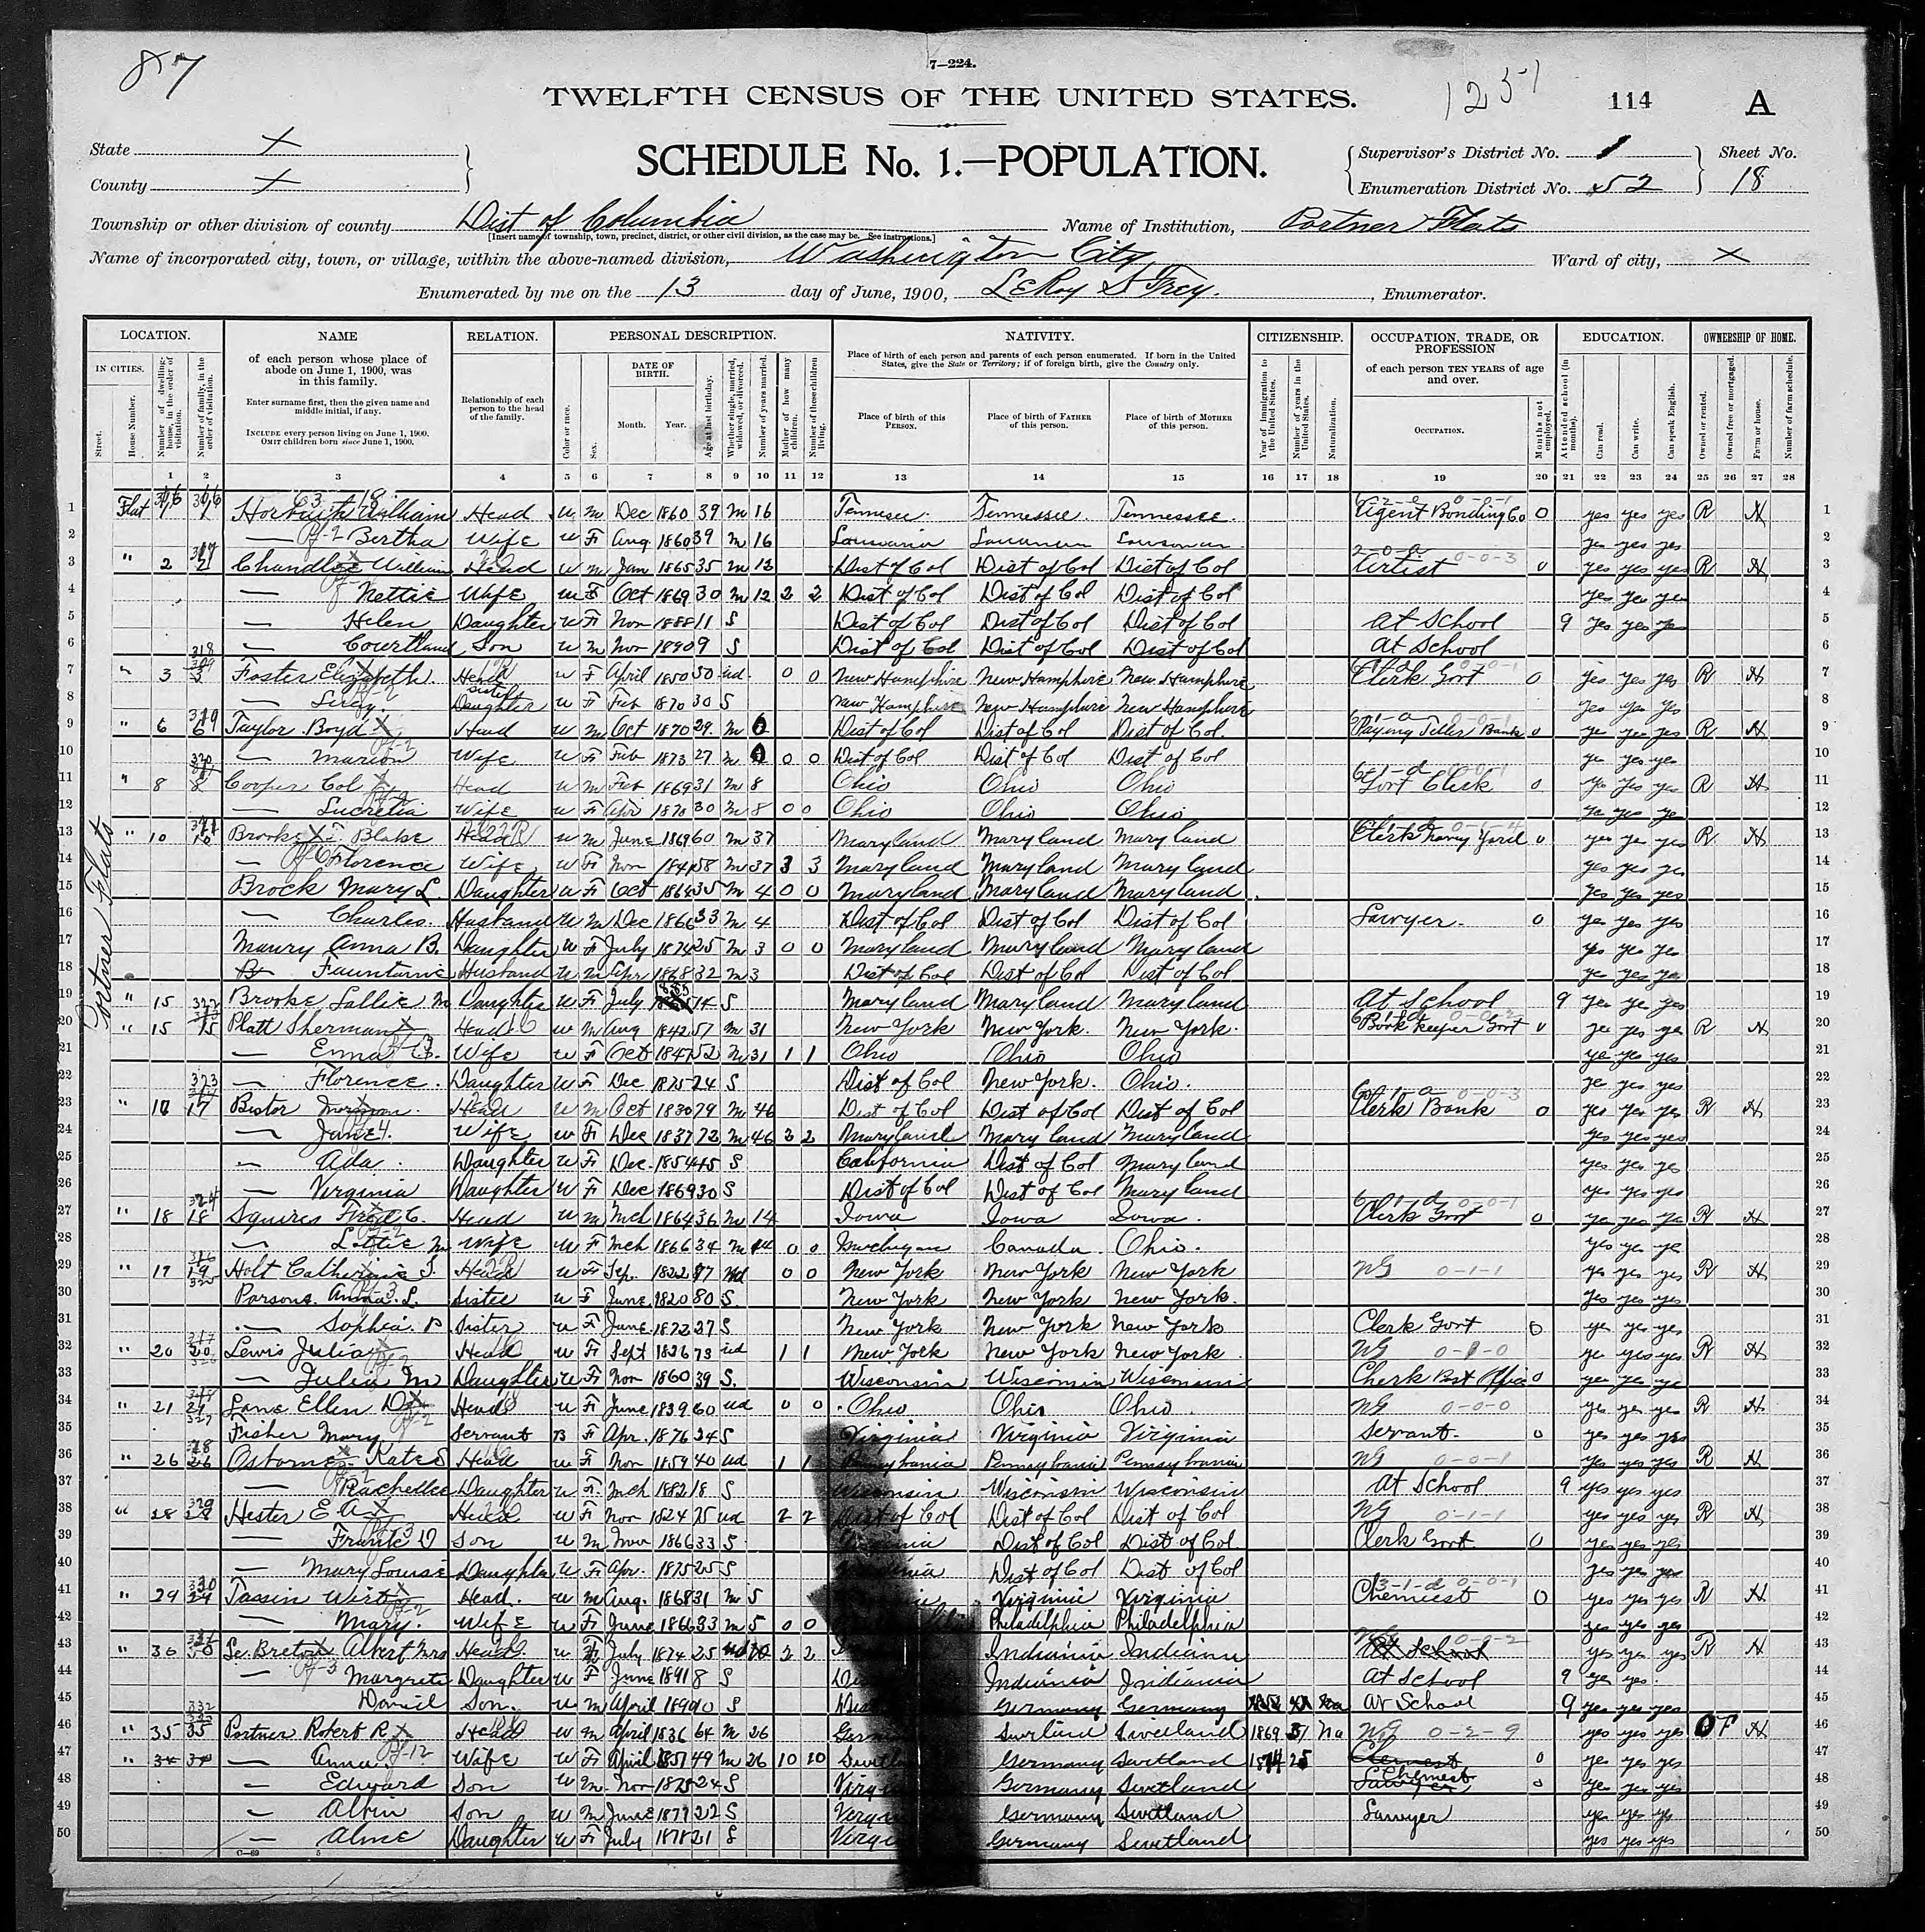 87
7—224.
TWELFTH CENSUS OF THE UNITED STATES.
1251
114
A
State X
County X
SCHEDULE No. 1.—POPULATION.
Supervisor's District No. 1
Enumeration District No. 52
Sheet No.
18
Township or other division of county Dist of Columbia
[Insert name of township, town, precinct, district, or other civil division, as the case may be. See instructions.]
Name of Institution, Portner Flats
Name of incorporated city, town, or village, within the above-named division, Washington City
Ward of city, X
Enumerated by me on the 13 day of June, 1900, LeRoy S Frey, Enumerator.
LOCATION.
IN CITIES.
Street.
House Number.
Number of dwelling-house, in the order of visitation.
Number of family, in the order of visitation.
NAME
of each person whose place of abode on June 1, 1900, was in this family.
Enter surname first, then the given name and middle initial, if any.
INCLUDE every person living on June 1, 1900.
OMIT children born since June 1, 1900.
RELATION.
Relationship of each person to the head of the family.
PERSONAL DESCRIPTION.
Color or race.
Sex.
DATE OF BIRTH.
Month.
Year.
Age at last birthday.
Whether single, married, widowed, or divorced.
Number of years married.
Mother of how many children.
Number of these children living.
NATIVITY.
Place of birth of each person and parents of each person enumerated. If born in the United States, give the State or Territory; if of foreign birth, give the Country only.
Place of birth of this PERSON.
Place of birth of FATHER of this person.
Place of birth of MOTHER of this person.
CITIZENSHIP.
Year of immigration to the United States.
Number of years in the United States.
Naturalization.
OCCUPATION, TRADE, OR PROFESSION
of each person TEN YEARS of age and over.
OCCUPATION.
Months not employed.
EDUCATION.
Attended school (in months).
Can read.
Can write.
Can speak English.
OWNERSHIP OF HOME.
Owned or rented.
Owned free or mortgaged.
Farm or house.
Number of farm schedule.
1 2 3 4 5 6 7 8 9 10 11 12 13 14 15 16 17 18 19 20 21 22 23 24 25 26 27 28
Portner Flats
1 Flat 1 1 William Head W M Dec 1860 39 M 16 Tennessee Tennessee Agent Bonding Co 0 yes yes yes R H 1
2 — Bertha Wife W F Aug 1860 39 M 16 yes yes yes 2
3 " 2 2 William Head W M Jan 1865 35 M 13 Dist of Col Dist of Col Dist of Col Artist 0 yes yes yes R H 3
4 — Nettie Wife W F Oct 1869 30 M 12 2 2 Dist of Col Dist of Col Dist of Col yes yes yes 4
5 — Helen Daughter W F Nov 1888 11 S Dist of Col Dist of Col Dist of Col At School 9 yes yes yes 5
6 — Courtland Son W M Nov 1890 9 S Dist of Col Dist of Col Dist of Col At School 6
7 " 3 3 Foster Elizabeth Head W F April 1850 50 Wd 0 0 New Hampshire New Hampshire New Hampshire Clerk Govt 0 yes yes yes R H 7
8 — sister Daughter W F Feb 1870 30 S New Hampshire New Hampshire New Hampshire yes yes yes 8
9 " 6 6 Taylor Boyd Head W M Oct 1870 29 M 0 Dist of Col Dist of Col Dist of Col Paying Teller Bank 0 yes yes yes R H 9
10 — Marion Wife W F Feb 1873 27 M 0 0 0 Dist of Col Dist of Col Dist of Col yes yes yes 10
11 " 8 8 Cooper Col Head W M Feb 1869 31 M 8 Ohio Ohio Ohio Govt Clerk 0 yes yes yes R H 11
12 — Lucretia Wife W F Apr 1870 30 M 8 0 0 Ohio Ohio Ohio yes yes yes 12
13 " 10 10 Brooke Blake Head W M June 60 M 37 Maryland Maryland Maryland Clerk Navy Yard 0 yes yes yes R H 13
14 — Florence Wife W F Nov 1841 58 M 37 3 3 Maryland Maryland Maryland yes yes yes 14
15 Brock Mary L. Daughter W F Oct 1864 35 M 4 0 0 Maryland Maryland Maryland yes yes yes 15
16 — Charles. Husband W M Dec 1866 33 M 4 Dist of Col Dist of Col Dist of Col Lawyer. 0 yes yes yes 16
17 Maury Anna B. Daughter W F July 1874 25 M 3 0 0 Maryland Maryland Maryland yes yes yes 17
18 Husband W M Apr 1868 32 M 3 Dist of Col Dist of Col Dist of Col yes yes yes 18
19 " 15 Brooke Sallie M Daughter W F July 14 S Maryland Maryland Maryland At School 9 yes yes yes 19
20 " 15 15 Platt Sherman Head W M Aug 1842 57 M 31 New York New York. New York. Book keeper Govt 0 yes yes yes R H 20
21 — Emma B. Wife W F Oct 1847 52 M 31 1 1 Ohio Ohio Ohio yes yes yes 21
22 — Florence. Daughter W F Dec 1875 24 S Dist of Col New York. Ohio. yes yes yes 22
23 " 17 17 Bestor Head W M Oct 1830 79 M 46 Dist of Col Dist of Col Dist of Col Clerk Bank 0 yes yes yes R H 23
24 — Jane Wife W F Dec 1837 72 M 46 3 2 Maryland Maryland Maryland yes yes yes 24
25 — Ada. Daughter W F Dec. 1854 45 S California Dist of Col Maryland yes yes yes 25
26 — Virginia Daughter W F Dec 1869 30 S Dist of Col Dist of Col Maryland yes yes yes 26
27 " 18 18 Squires Fred C. Head W M Mch 1864 36 M 14 Iowa Iowa Iowa. Clerk Govt 0 yes yes yes R H 27
28 — Lottie M Wife W F Mch 1866 34 M 14 0 0 Michigan Canada. Ohio. yes yes yes 28
29 " 19 19 Holt Catherine S. Head W F Sep. 1822 77 Wd 0 0 New York New York New York NG 0-1-1 yes yes yes R H 29
30 Parsons. Anna. L. Sister W F June 1820 80 S. New York New York New York. yes yes yes 30
31 — Sophia. P. Sister W F June 1872 27 S New York New York New York Clerk Govt 0 yes yes yes 31
32 " 20 20 Lewis Julia Head W F Sept 1826 73 Wd 1 1 New York New York New York NG yes yes yes R H 32
33 — Julia M Daughter W F Nov 1860 39 S. Wisconsin Wisconsin Wisconsin Clerk Post Office 0 yes yes yes 33
34 " 21 21 Lane Ellen D Head W F June 1839 60 Wd 0 0 Ohio Ohio Ohio. NG 0-0-0 yes yes yes R H 34
35 Fisher Mary Servant B F Apr. 1876 24 S Virginia Virginia Virginia Servant. 0 yes yes yes 35
36 " 26 26 Kate S Head W F Nov 1859 40 Wd 1 1 Pennsylvania Pennsylvania Pennsylvania NG 0-0-1 yes yes yes R H 36
37 — Daughter W F. Mch 1882 18 S Wisconsin Wisconsin Wisconsin At School 9 yes yes yes 37
38 " 28 28 Hester E A Head W F Nov 1824 75 Wd 2 2 Dist of Col Dist of Col Dist of Col NG 0-1-1 yes yes yes R H 38
39 — Frank D Son W M Nov 1866 33 S Dist of Col Dist of Col. Clerk Govt 0 yes yes yes 39
40 — Mary Louise Daughter W F Apr. 1875 25 S Dist of Col Dist of Col yes yes yes 40
41 " 29 29 Tassin Wirt Head. W M Aug. 1868 31 M 5 Virginia Virginia Chemist 0 yes yes yes R H 41
42 — Mary. Wife W F June 1866 33 M 5 0 0 Philadelphia Philadelphia yes yes yes 42
43 " 30 30 Le Breton Albert Mrs Head. W F July 1874 25 2 2 Indiania Indiania At School yes yes yes R H 43
44 — Margrete Daughter W F June 1891 8 S Indiania Indiania At School 9 yes yes. 44
45 Daniel Son. W M April 1890 10 S Germany Germany Na At School 9 yes yes yes 45
46 " 35 35 Portner Robert R Head W M April 1836 64 M 26 Swetland 1869 31 Na NG 0-2-9 yes yes yes O F H 46
47 " 34 34 — Anna Wife W F April 1851 49 M 26 10 10 Germany Swetland 25 Chemist 0 yes yes yes 47
48 — Edward Son W M. Nov 24 S Germany Swetland Chemist Lawyer 0 yes yes yes 48
49 — Alvin Son W M June 1877 22 S Germany Swetland Lawyer yes yes yes 49
50 — Alme Daughter W F July 1878 21 S Germany Swetland yes yes yes 50
C—69